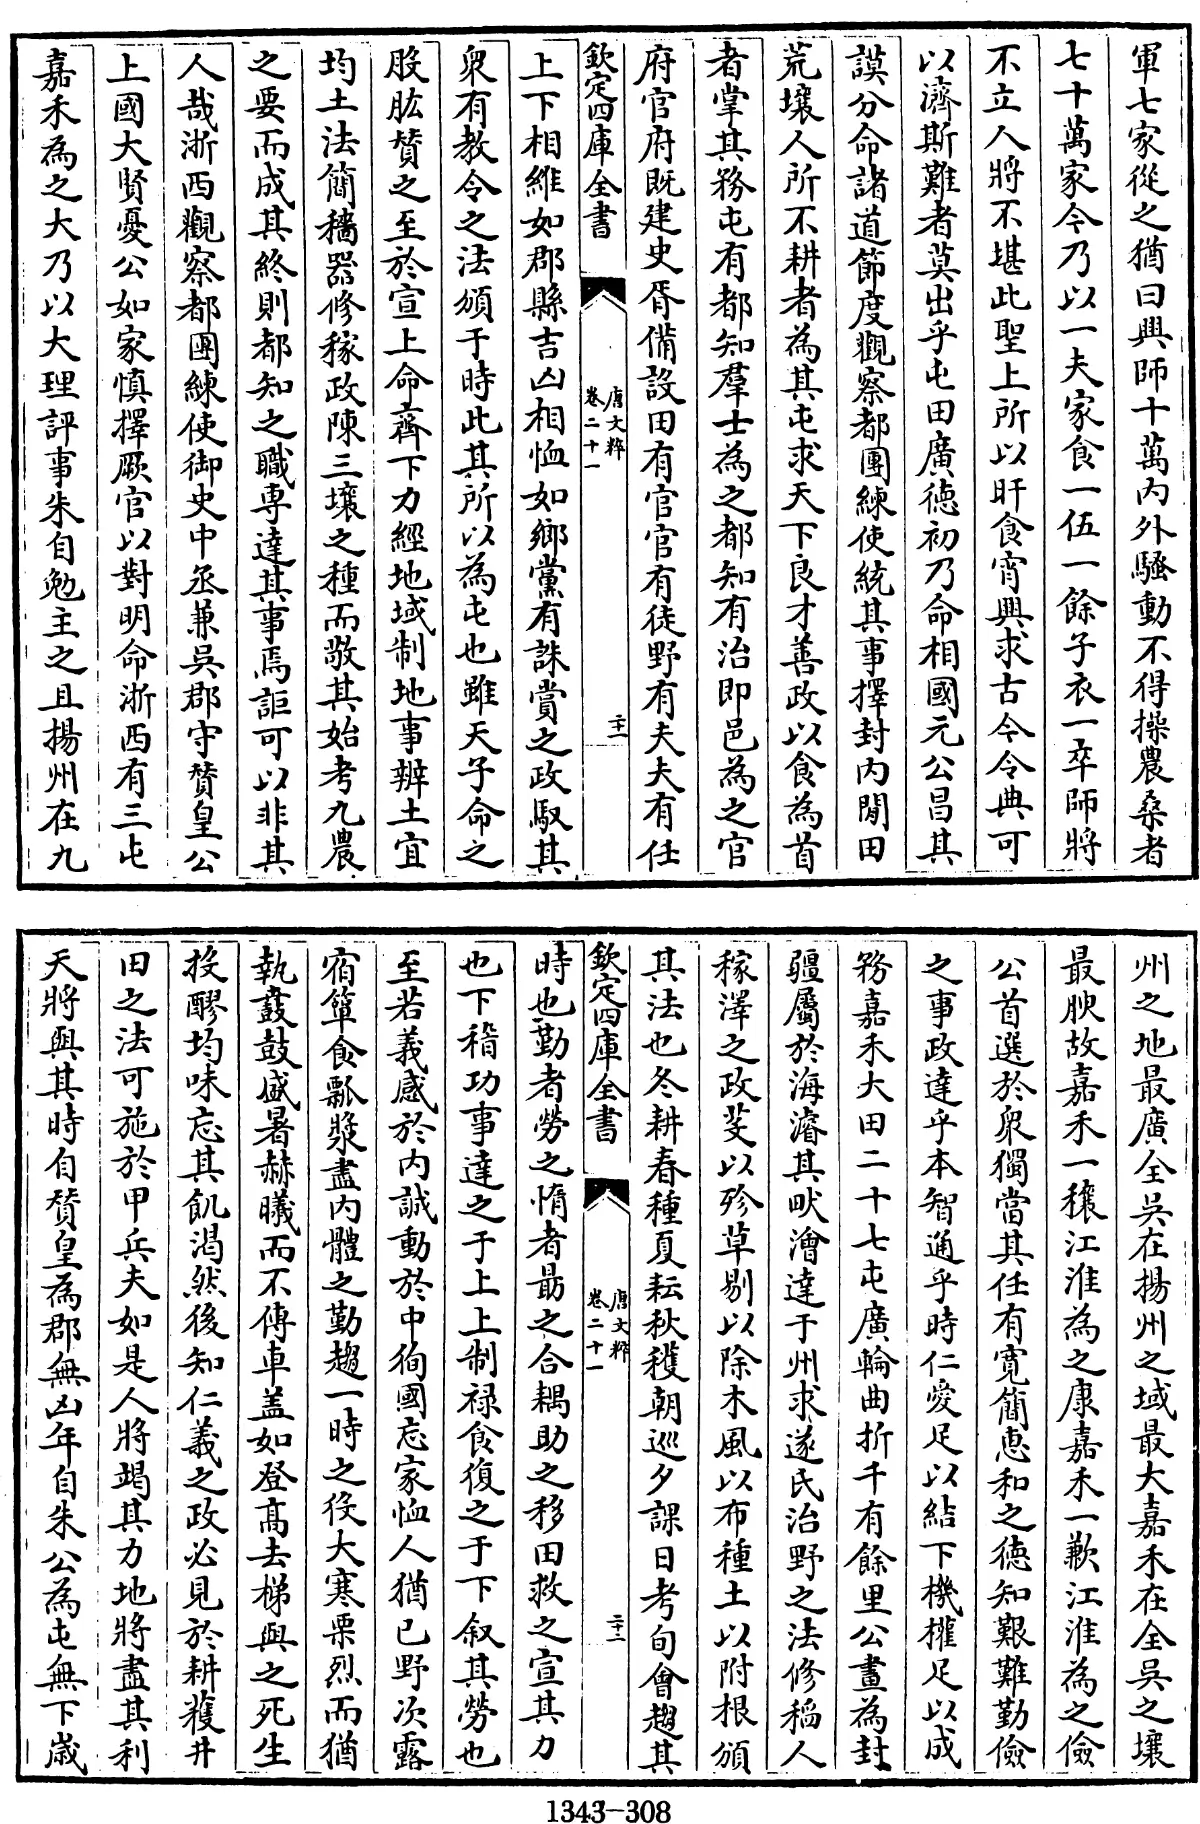 軍七家從之猶曰興師十萬內外騷動不得操農桑者
七十萬家今乃以一夫家食一伍一餘子衣一卒師將
不立人將不堪此聖上所以旰食宵興求古今令典可
以濟斯難者莫出乎屯田廣徳初乃命相國元公昌其
謨分命諸道節度觀察都團練使統其事擇封內閒田
荒壤人所不耕者為其屯求天下良才善政以食為首
者掌其務屯有都知羣士為之都知有治即邑為之官
府官府既建史胥備設田有官官有徒野有夫夫有任
欽定四庫全書
唐文粹
卷二十一
二十一
上下相維如郡縣吉凶相恤如鄉黨有誅賞之政馭其
衆有教令之法頒于時此其所以為屯也雖天子命之
股肱賛之至於宣上命齊下力經地域制地事辨土宜
均土法簡穡器修稼政陳三壤之種而敬其始考九農
之要而成其終則都知之職専達其事焉詎可以非其
人哉浙西觀察都團練使御史中丞兼吳郡守賛皇公
上國大賢憂公如家慎擇厥官以對明命浙西有三屯
嘉禾為之大乃以大理評事朱自勉主之且揚州在九
州之地最廣全吳在揚州之域最大嘉禾在全吳之壤
最腴故嘉禾一穰江淮為之康嘉禾一歉江淮為之儉
公首選於衆獨當其任有寛簡恵和之徳知艱難勤儉
之事政達乎本智通乎時仁愛足以結下機權足以成
務嘉禾大田二十七屯廣輪曲折千有餘里公畫為封
疆屬於海濬其畎澮達于州求遂氏治野之法修稲人
稼澤之政芟以殄草剔以除木風以布種土以附根頒
其法也冬耕春種夏耘秋穫朝巡夕課日考旬會趨其
欽定四庫全書
唐文粹
卷二十一
二十二
時也勤者勞之惰者勗之合耦助之移田救之宣其力
也下稽功事達之于上上制禄食復之于下叙其勞也
至若義感於內誠動於中徇國忘家恤人猶已野次露
宿簞食瓢漿盡內體之勤趨一時之役大寒栗烈而猶
執鼛鼓盛暑赫曦而不傳車盖如登髙去梯與之死生
投醪均味忘其飢渴然後知仁義之政必見於耕穫井
田之法可施於甲兵夫如是人將竭其力地將盡其利
天將與其時自賛皇為郡無凶年自朱公為屯無下嵗
1343-308